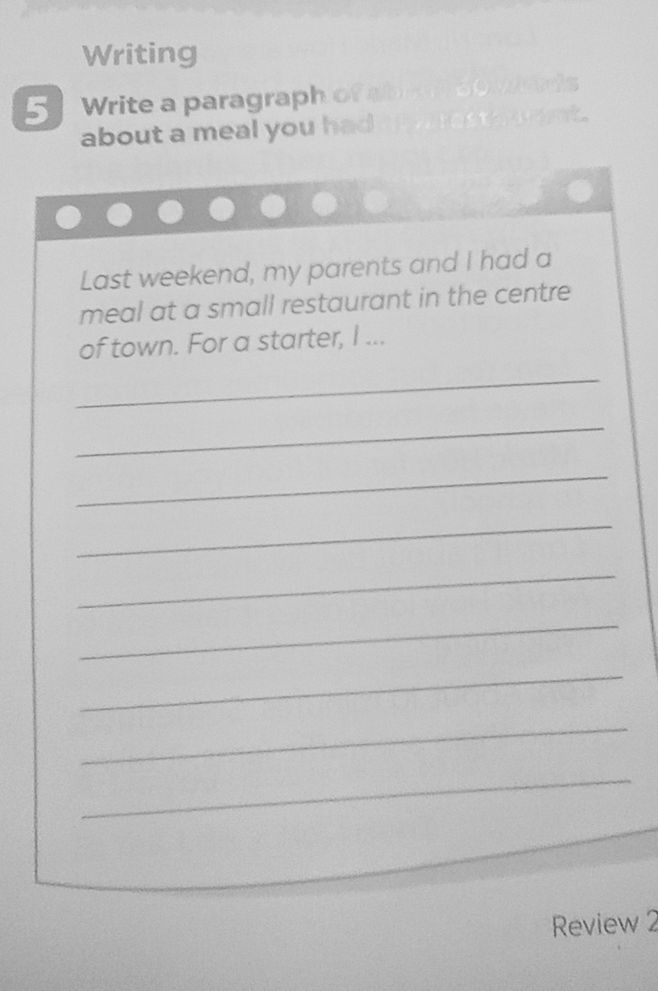 Writing
5 Write a paragraph of about 50 words
about a meal you had in a restaurant.
Last weekend, my parents and I had a
meal at a small restaurant in the centre
of town. For a starter, I ...
Review 2